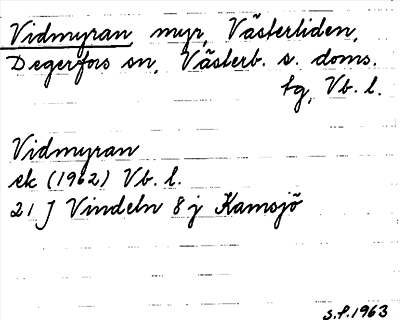 Vidmyran myr, Västerliden,
Degerfors sn, Västerb. s. doms.
tg, Vb. l.
Vidmyran
ek (1962) Vb. l.
21 J Vindeln 8 j Kamsjö
S.F. 1963